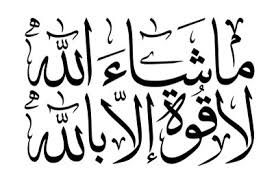 ما شاءَ اللّٰه
لا قُوة إلّا بالله